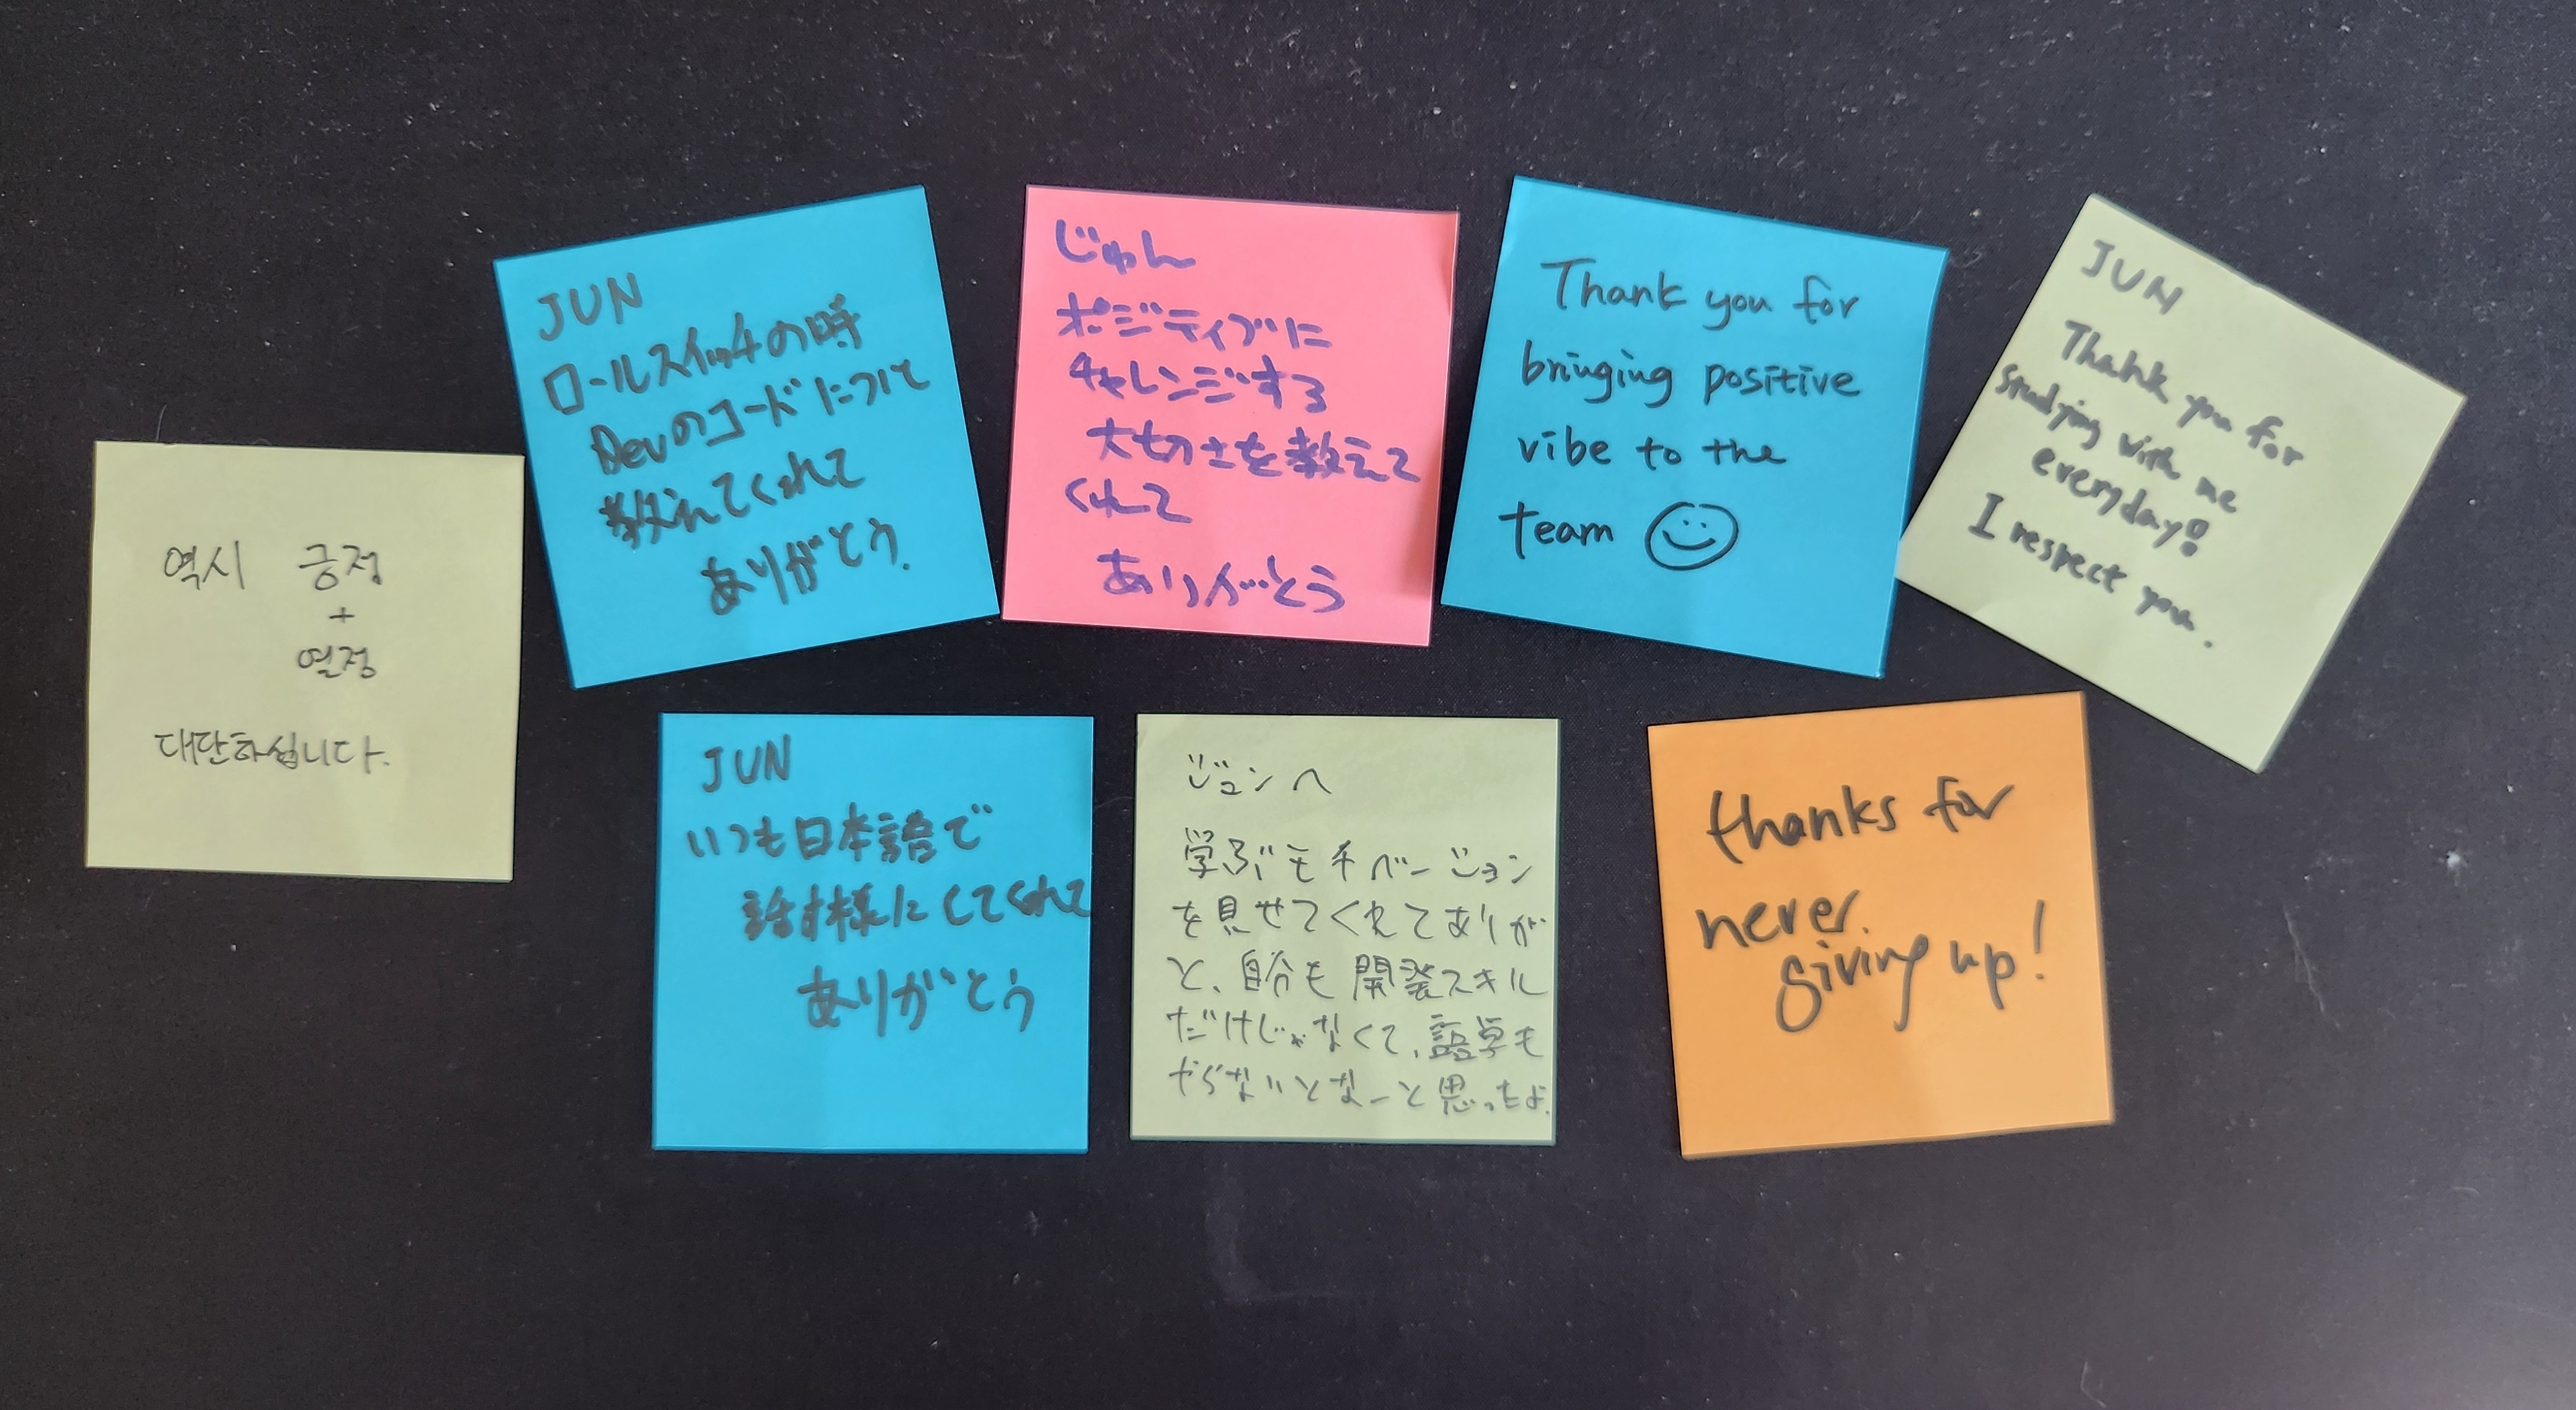 역시 긍정
+
열정
대단하십니다.
JUN
ロールスイッチの時
Devのコードについて
教えてくれて
ありがとう.
じゅん
ポジティブに
チャレンジする
大切さを教えて
くれて
ありがとう
Thank you for
bringing positive
vibe to the
team
JUN
Thank you for
studying with me
everyday!!
I respect you.
JUN
いつも日本語で
話す様にしてくれて
ありがとう
ジュンへ
学ぶモチベーション
を見せてくれてありが
と、自分も開発スキル
だけじゃなくて、語学も
やらないとなーと思ったよ.
thanks for
never.
giving up!